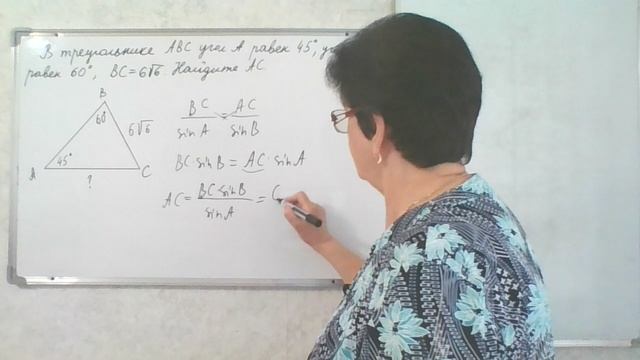 В треугольнике ABC угол A равен 45°,
равен 60°, BC=6√6. Найдите AC
B
60
6√6
45°
A
C
?
BC/sinA = AC/sinB
BC·sinB = AC·sinA
AC = BC·sinB/sinA =